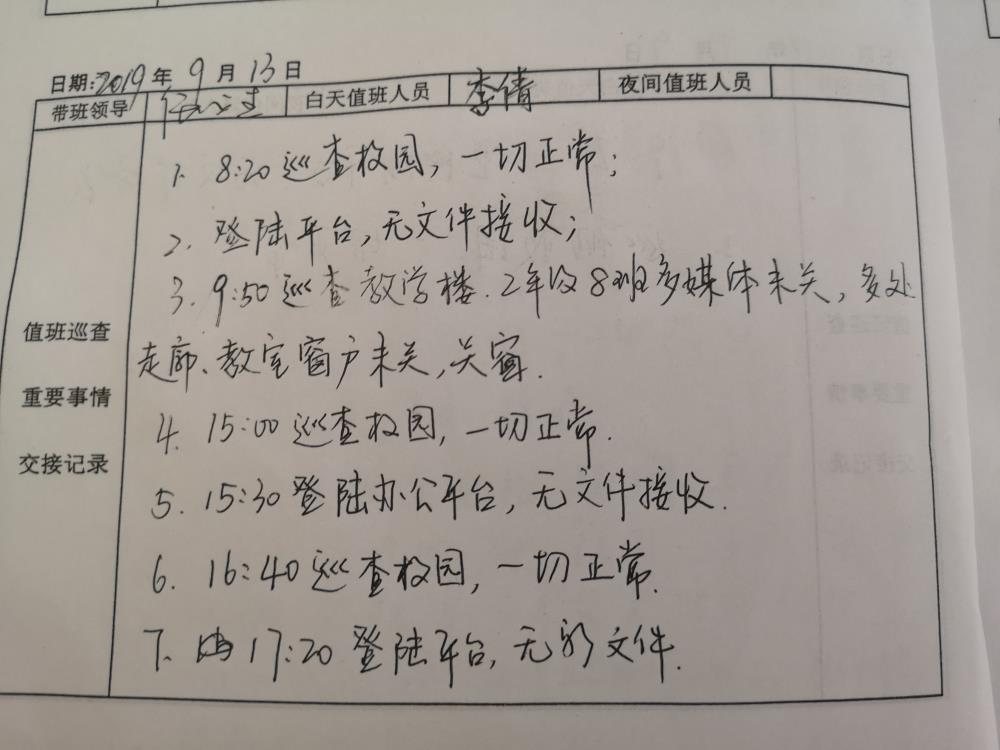 日期:2019年9月13日
带班领导 白天值班人员 李倩 夜间值班人员
1. 8:20巡查校园，一切正常；
2. 登陆平台，无文件接收；
3. 9:50巡查教学楼.2年级8班多媒体未关，多处
走廊、教室窗户未关，关窗.
值班巡查
重要事情
交接记录
4. 15:00巡查校园，一切正常.
5. 15:30登陆办公平台，无文件接收.
6. 16:40巡查校园，一切正常.
7. 17:20登陆平台，无新文件.